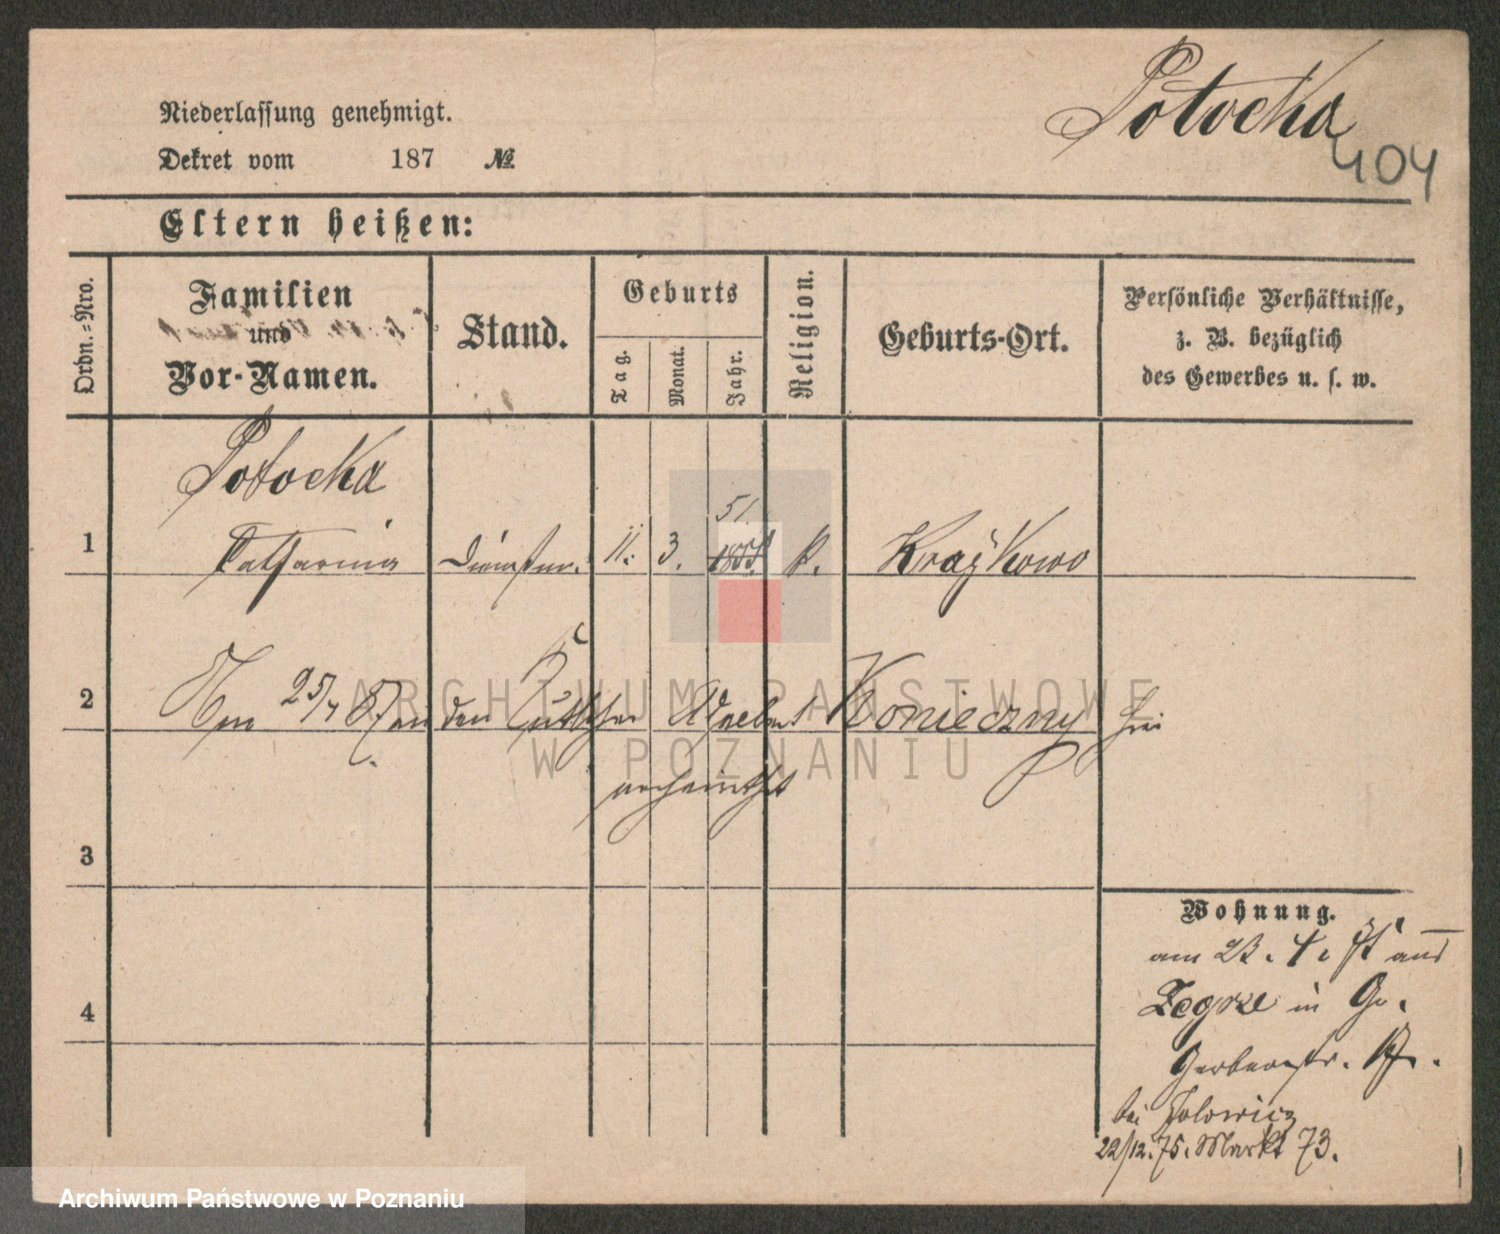 Potocka
404
Niederlassung genehmigt.
Dekret vom 187 №
Eltern heißen:
Ordn.-Nro.
Familien
und
Vor-Namen.
Stand.
Geburts
Tag.
Monat.
Jahr.
Religion.
Geburts-Ort.
Persönliche Verhältnisse,
z. B. bezüglich
des Gewerbes u. s. w.
Potocka
51
1 Catharina 11. 3. k.
2 Am 25/7 87 an den Adalbert Konieczny hier
verheirathet
3
4
Wohnung.
am 23. 4. aus
Zegrze in Gr.
Gerberstr.
bei Jolowicz
22/12.75. Markt 73.
ARCHIWUM PAŃSTWOWE
W POZNANIU
Archiwum Państwowe w Poznaniu